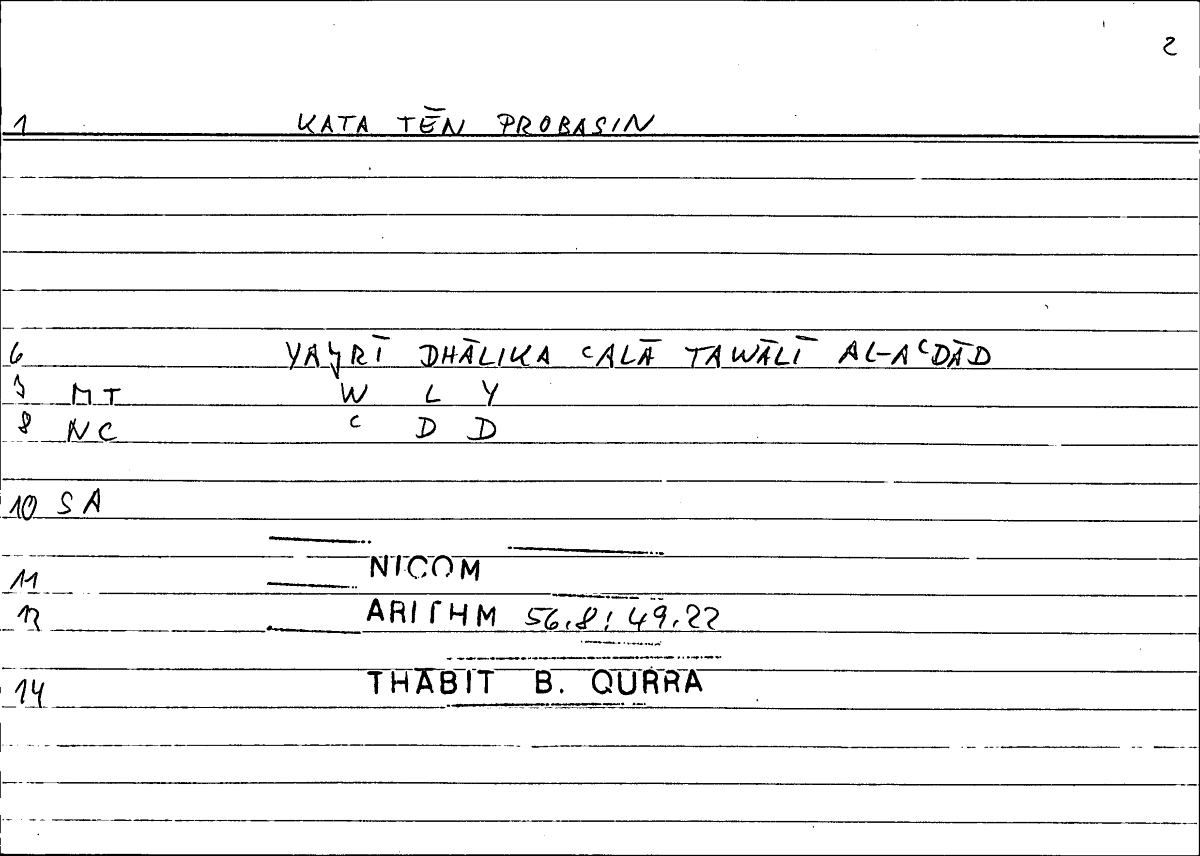 2
1 KATA TĒN PROBASIN
6 YAǦRĪ DHĀLIKA ᶜALĀ TAWĀLĪ AL-AᶜDĀD
MT W L Y
8 NC ᶜ D D
10 SA
11 NICOM
12 ARITHM 56.8; 49.22
14 THĀBIT B. QURRA